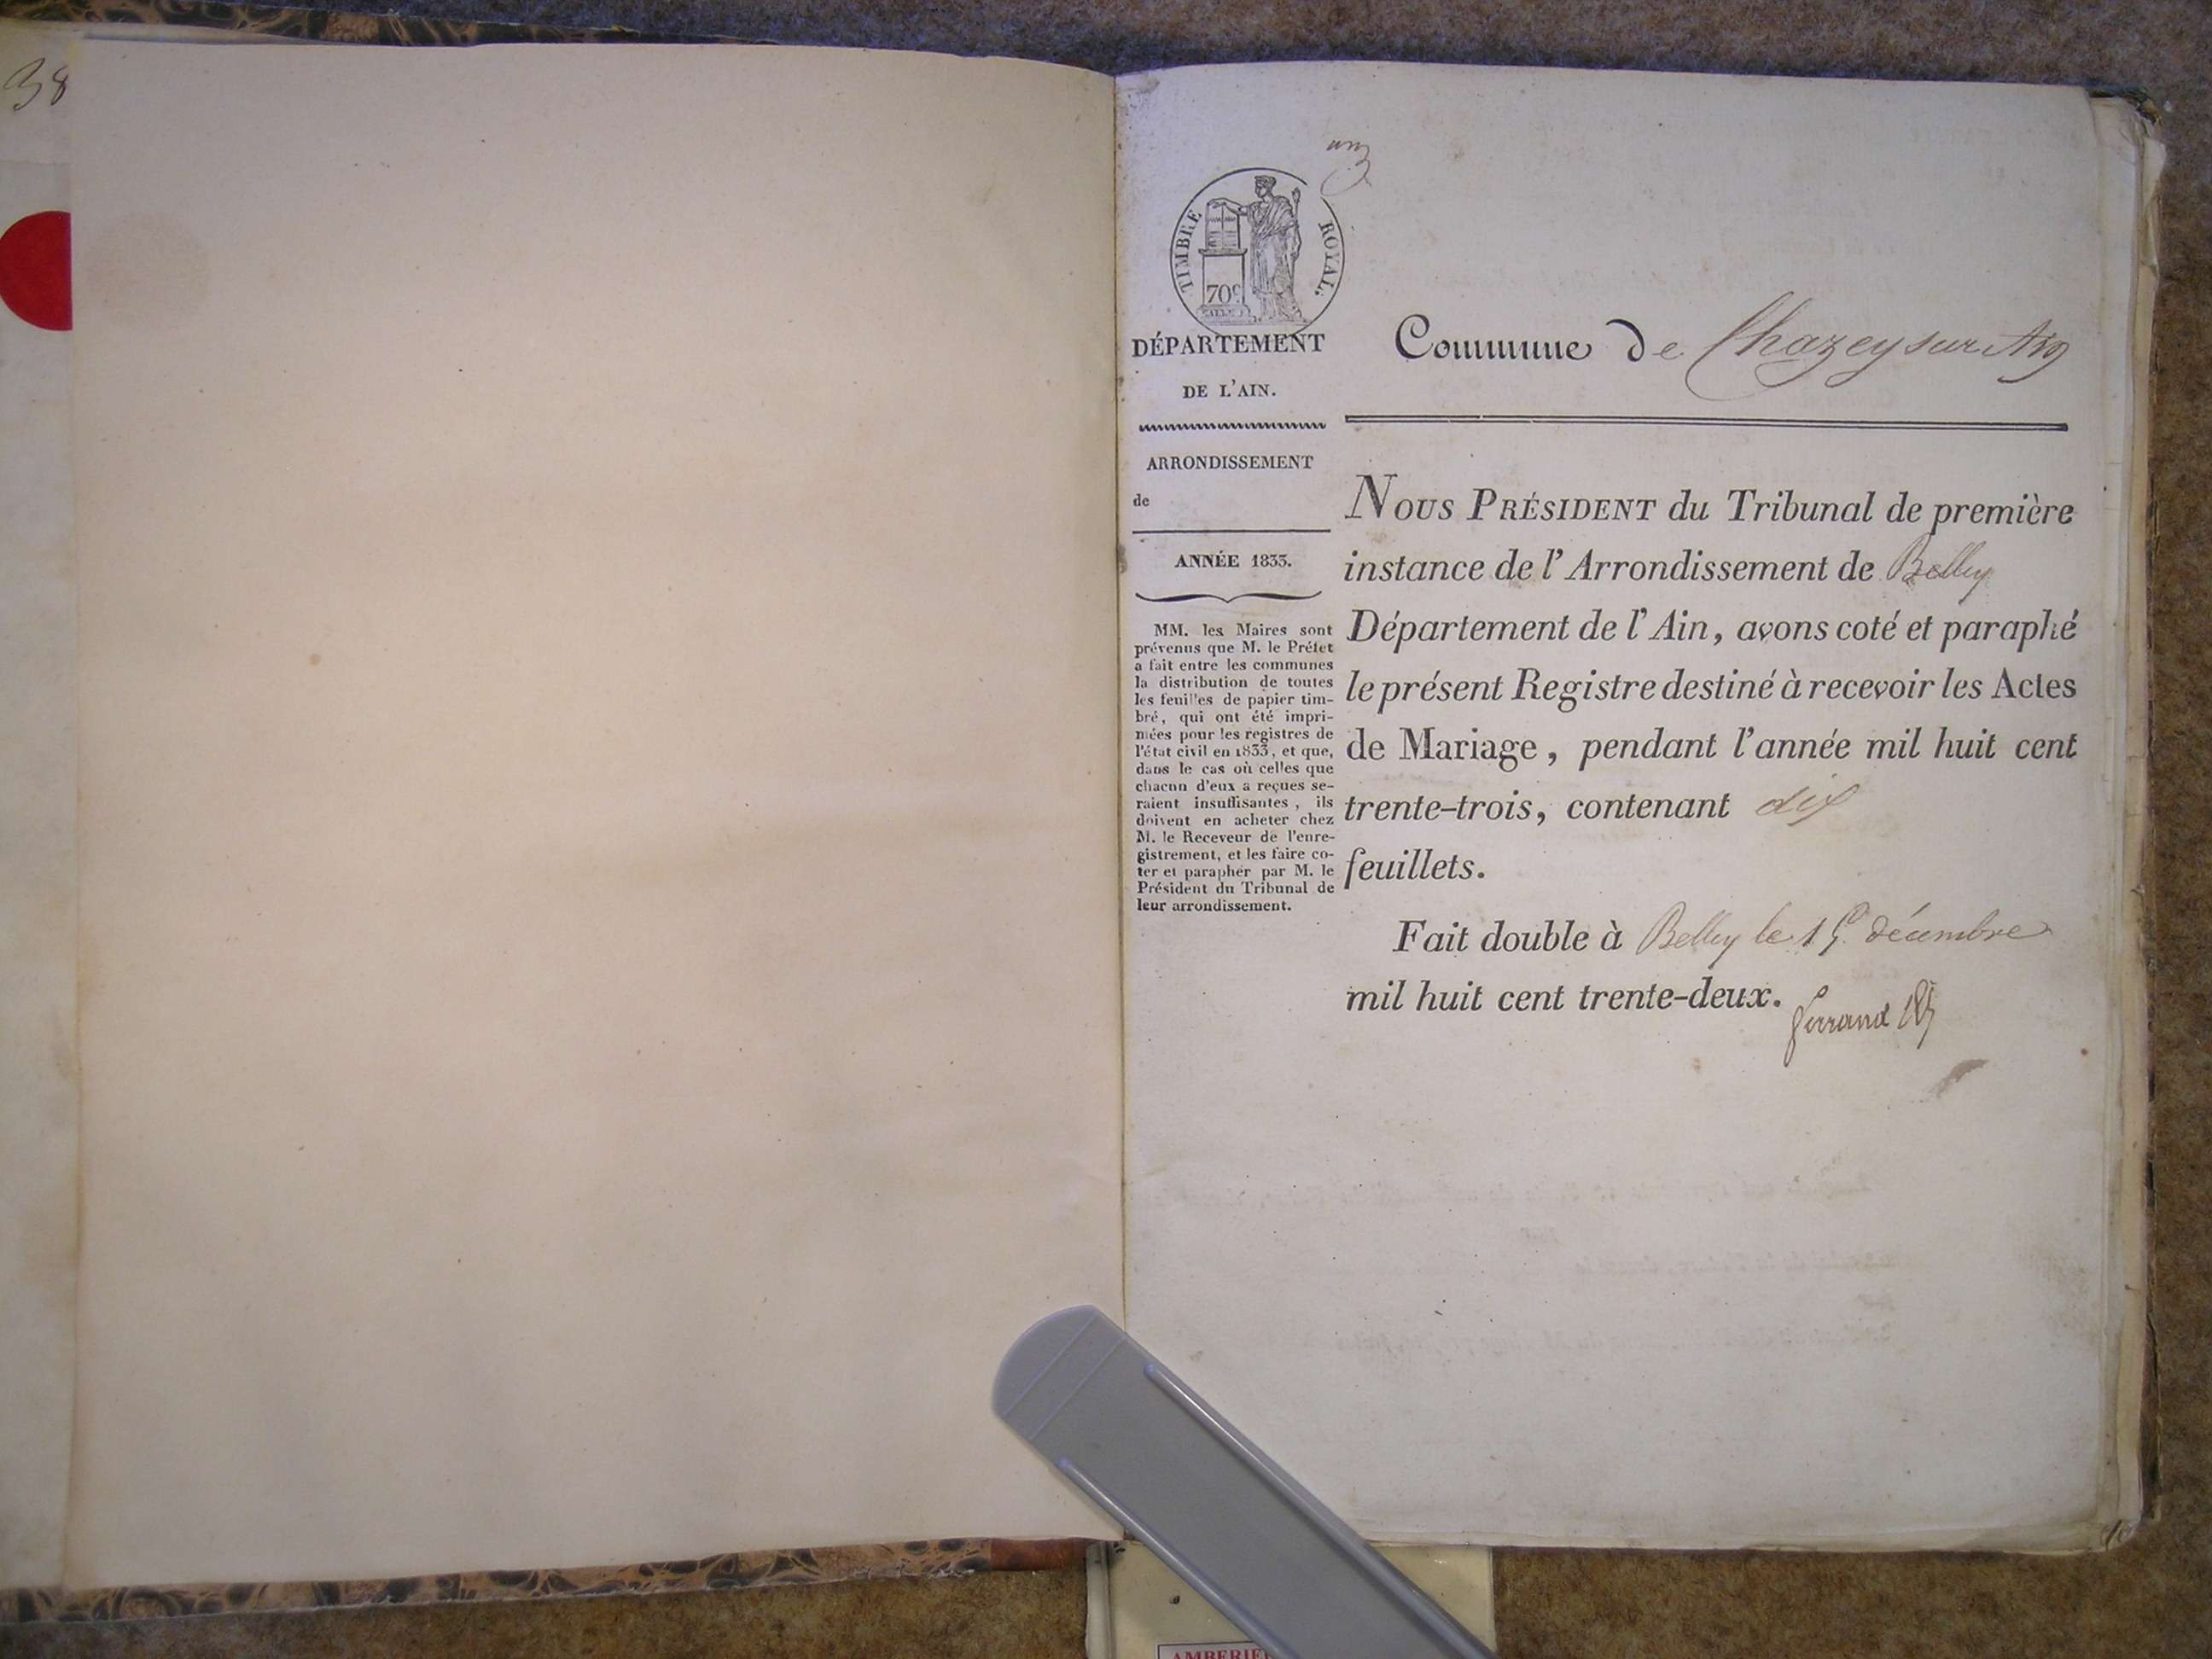 38
TIMBRE ROYAL.
70c
DÉPARTEMENT
DE L'AIN.
ARRONDISSEMENT
de
ANNÉE 1833.
MM. les Maires sont
prévenus que M. le Préfet
a fait entre les communes
la distribution de toutes
les feuilles de papier tim-
bré, qui ont été impri-
mées pour les registres de
l'état civil en 1833, et que,
dans le cas où celles que
chacun d'eux a reçues se-
raient insuffisantes, ils
doivent en acheter chez
M. le Receveur de l'enre-
gistrement, et les faire co-
ter et parapher par M. le
Président du Tribunal de
leur arrondissement.
Commune de Chazey sur Ain
NOUS PRÉSIDENT du Tribunal de première
instance de l'Arrondissement de Belley
Département de l'Ain, avons coté et paraphé
le présent Registre destiné à recevoir les Actes
de Mariage, pendant l'année mil huit cent
trente-trois, contenant dix
feuillets.
Fait double à Belley le décembre
mil huit cent trente-deux.
Ferrand